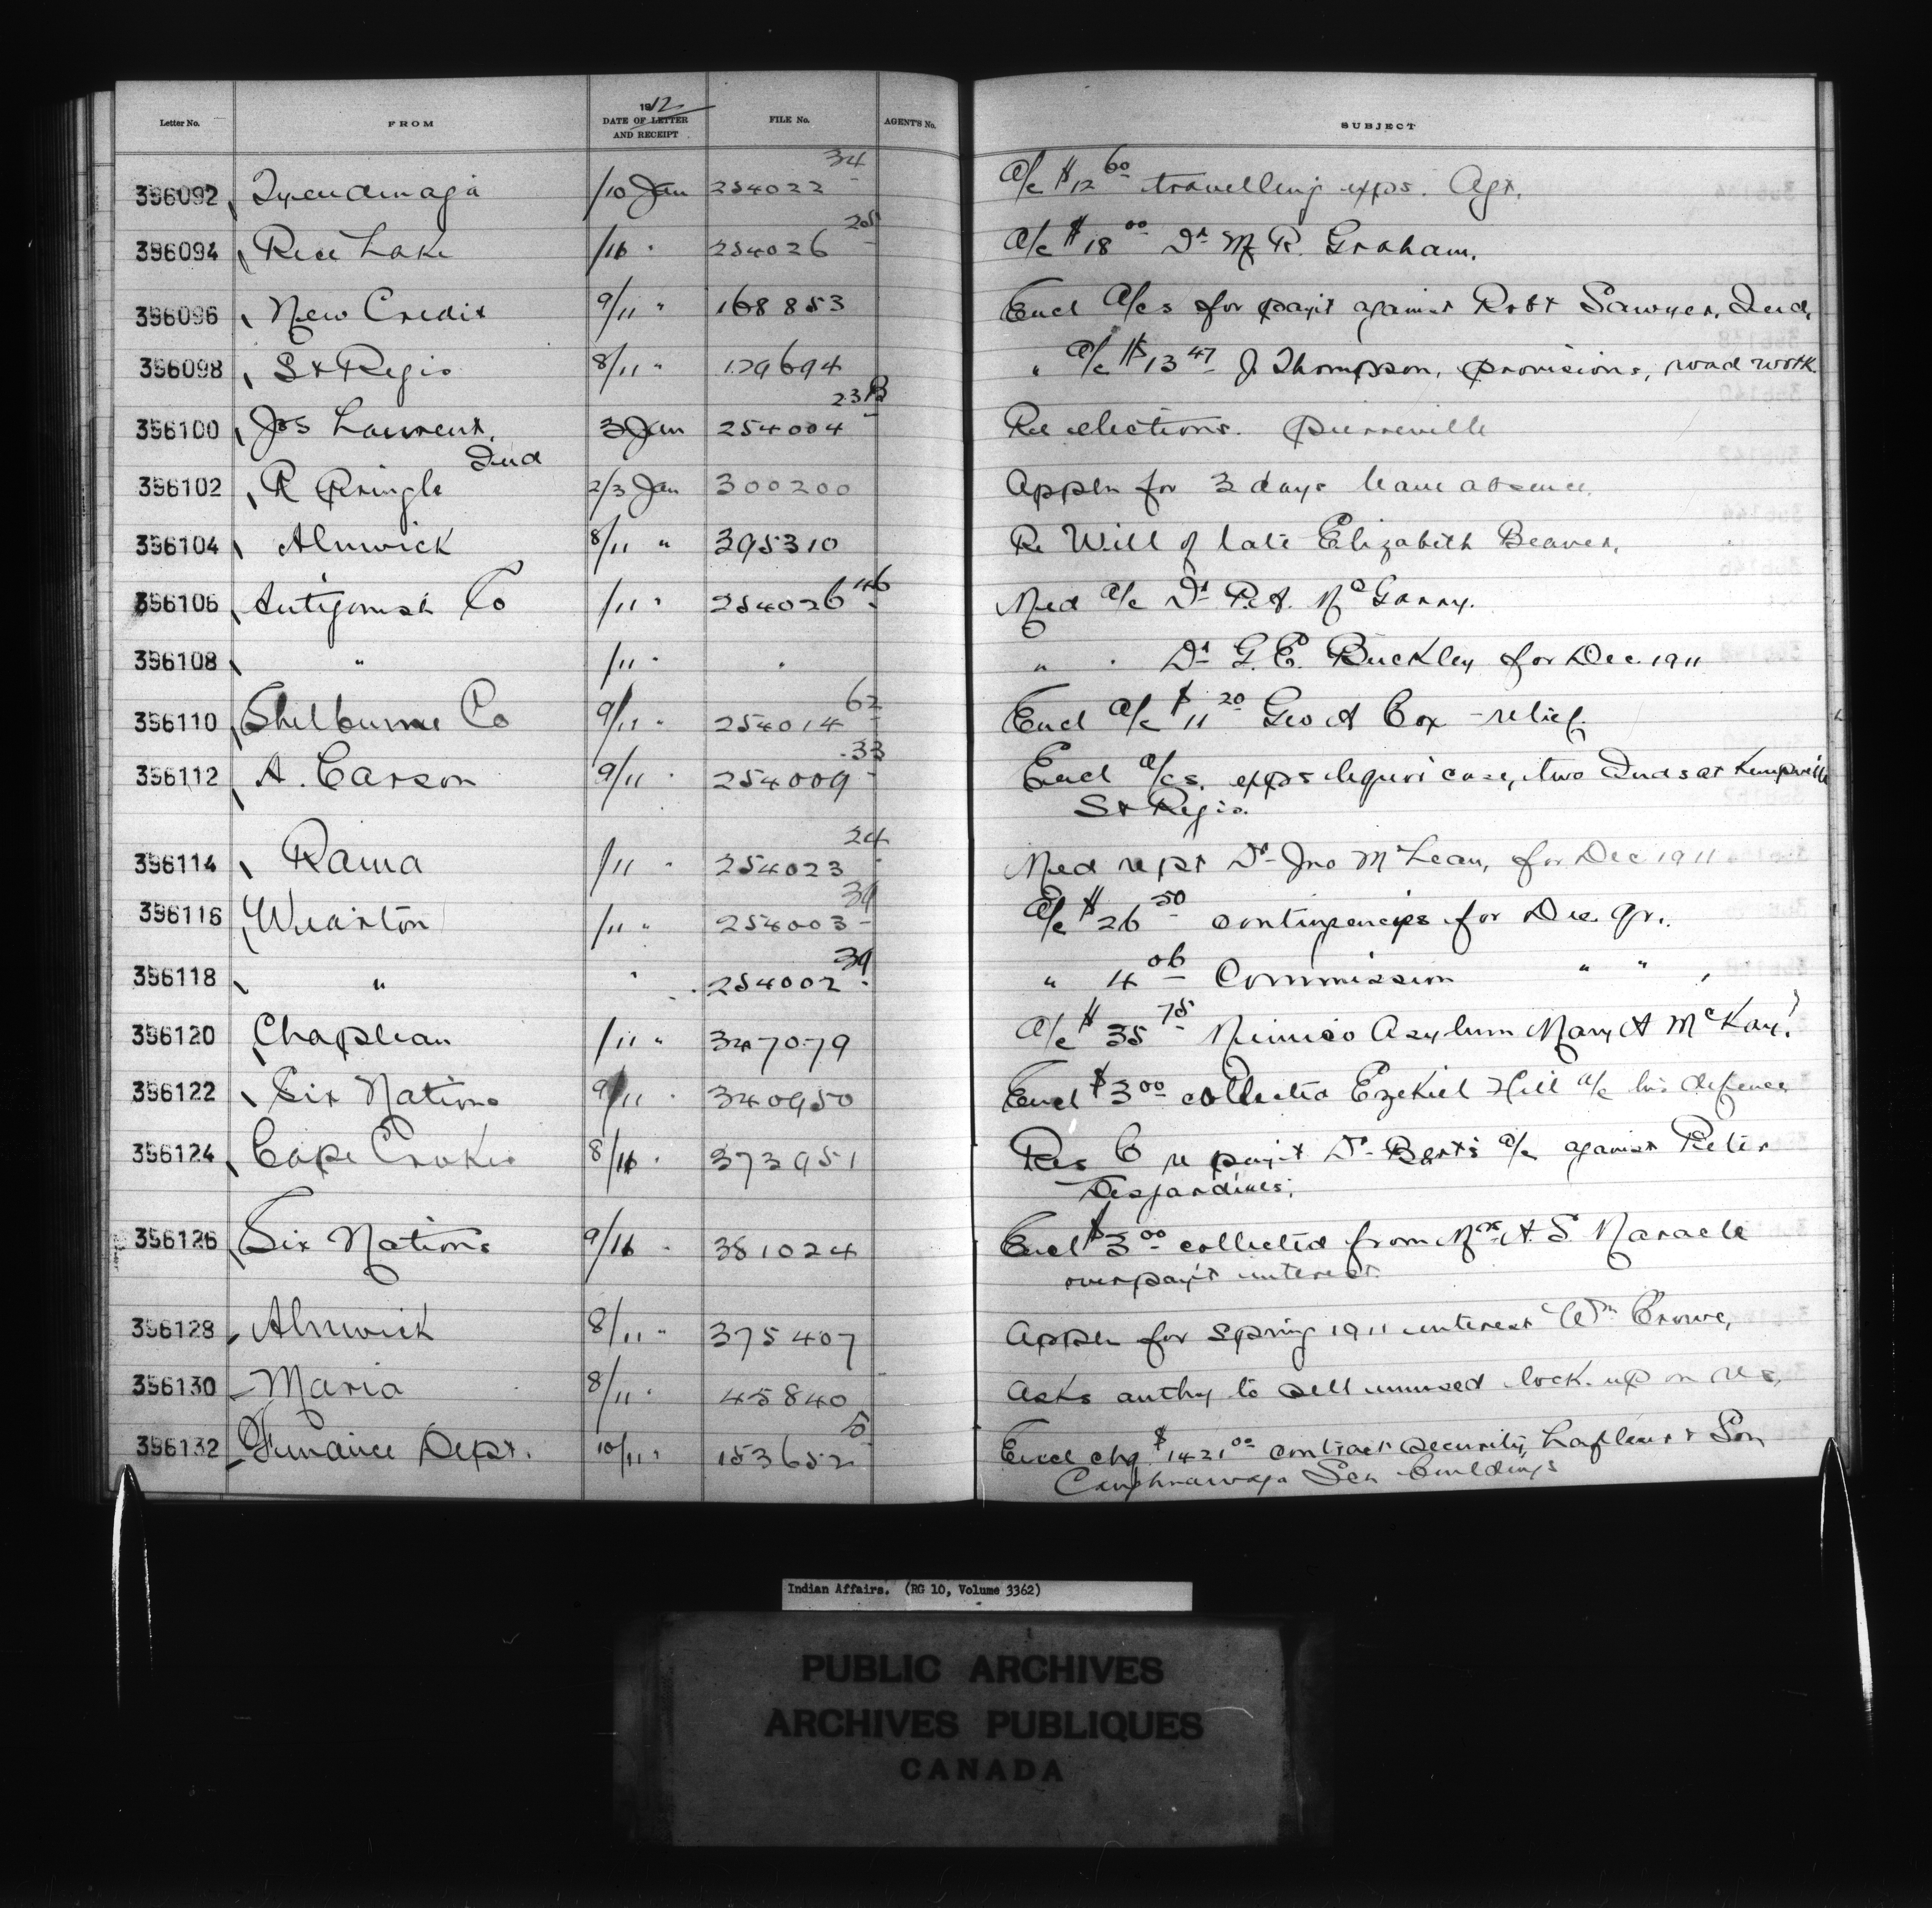 Letter No. FROM 1912 DATE OF LETTER AND RECEIPT FILE No. AGENT'S No. SUBJECT
396092 Tyendinaga /10 Jan 254022 34 A/c $12 60 travelling exps. Agt.
396094 Rice Lake /11 " 254026 25 A/c $18 00 Dr M R. Graham.
396096 New Credit 9/11 " 168853 Encl A/cs for payt against Robt Sawyer, Ind.
396098 St Regis 8/11 " 129694 " A/c $13 47 J Thompson, provisions, road work.
396100 Jos Laurent, Ind 3 Jan 254004 23B Re elections. Pierreville
396102 R Pringle 2/3 Jan 300200 Appln for 3 days leave absence.
396104 Alnwick 8/11 " 395310 Re Will of late Elizabeth Beaver.
396106 Antigonish Co /11 " 254026 46 Med A/c Dr P.A. McGarry.
396108 " /11 " " " " Dr G. E. Buckley for Dec. 1911
396110 Shelburne Co 9/11 " 254014 62 Encl A/c $11 20 Geo A Cox - relief.
396112 A. Carson 9/11 " 254009 33 Encl A/cs. exps liquor case, two Inds at Kemptville
St Regis.
396114 Rama /11 " 254023 24 Med rept Dr Jno McLean, for Dec 1911
396116 Wiarton /11 " 254003 39 A/c $26 50 contingencies for Dec. qr.
396118 " " 254002 39 " 4 06 Commission " " "
396120 Chapleau /11 " 347079 A/c $35 75 Mimico Asylum Mary A McKay.
396122 Six Nations 9/11 " 340950 Encl $3 00 collected Ezekiel Hill A/c his defence
396124 Cape Croker 8/11 " 373951 Res C re payt Dr A/c against Peter
Desjardines.
396126 Six Nations 9/11 " 381024 Encl $3 00 collected from Mrs A. S Maracle
overpayt interest.
396128 Alnwick 8/11 " 375407 Appln for Spring 1911 interest Wm Crowe,
396130 Maria 8/11 " 45840 Asks authy to sell unused lock-up on res,
396132 Finance Dept. 10/11 " 153652 5 Encl chq $1421 00 contract security, Lafleur & Son
Caughnawaga Sch buildings
Indian Affairs. (RG 10, Volume 3362)
PUBLIC ARCHIVES
ARCHIVES PUBLIQUES
CANADA